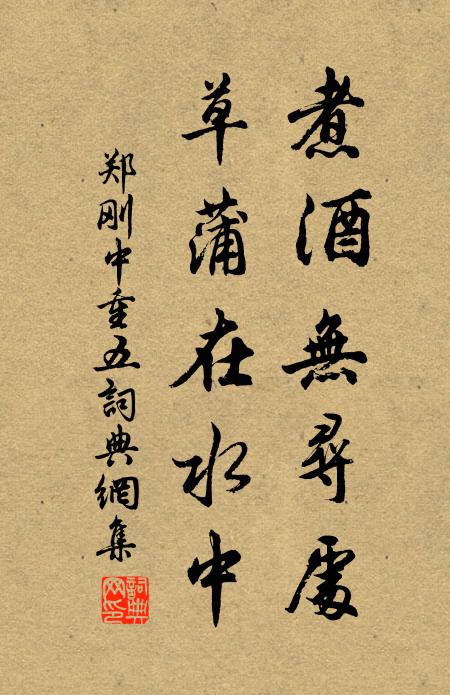 煮酒無尋處
草蒲在水中
郑刚中重五詞典網集
詞典
网印